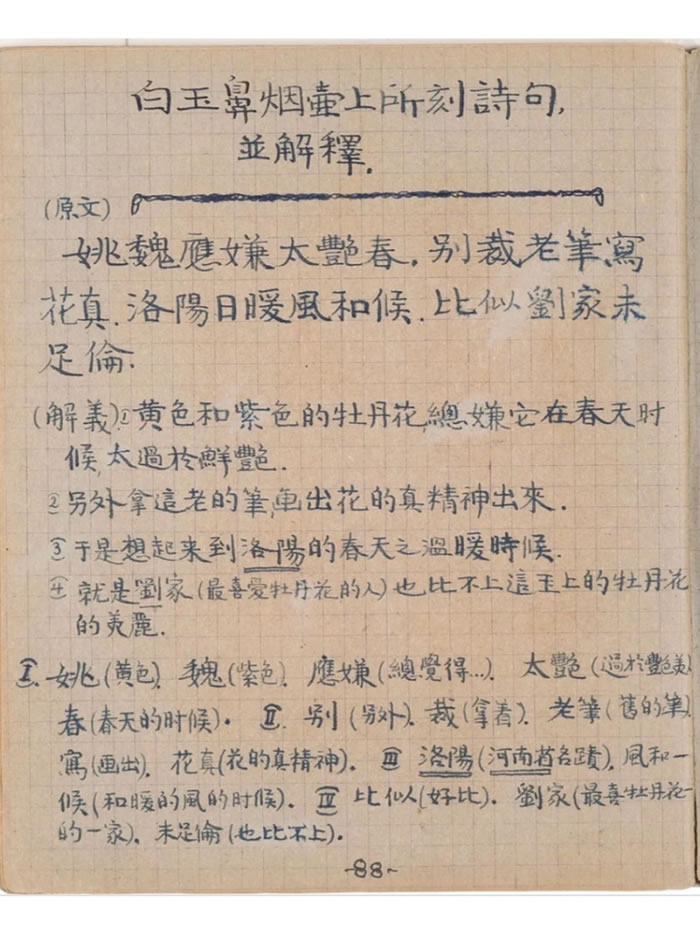 白玉鼻烟壷上所刻詩句,
並解釋.
(原文)
姚魏應嫌太艷春.别裁老筆寫
花真.洛陽日暖風和候.比似劉家未
足倫.
(解義).①黄色和紫色的牡丹花,總嫌它在春天时
候,太過於鮮艷.
②另外拿這老的筆,画出花的真精神出來.
③于是想起来到洛陽的春天之溫暖時候.
④就是劉家(最喜愛牡丹花的人)也比不上這玉上的牡丹花
的美麗.
Ⅰ.姚(黄色).魏(紫色).應嫌(總覺得…).太艷(過於艷美).
春(春天的时候)·Ⅱ.别(另外).裁(拿着).老筆(舊的筆).
寫(画出).花真(花的真精神).Ⅲ洛陽(河南省名蹟).風和一
候(和暖的風的时候).Ⅳ比似(好比).劉家(最喜牡丹花
的一家).未足倫(也比不上).
-88-